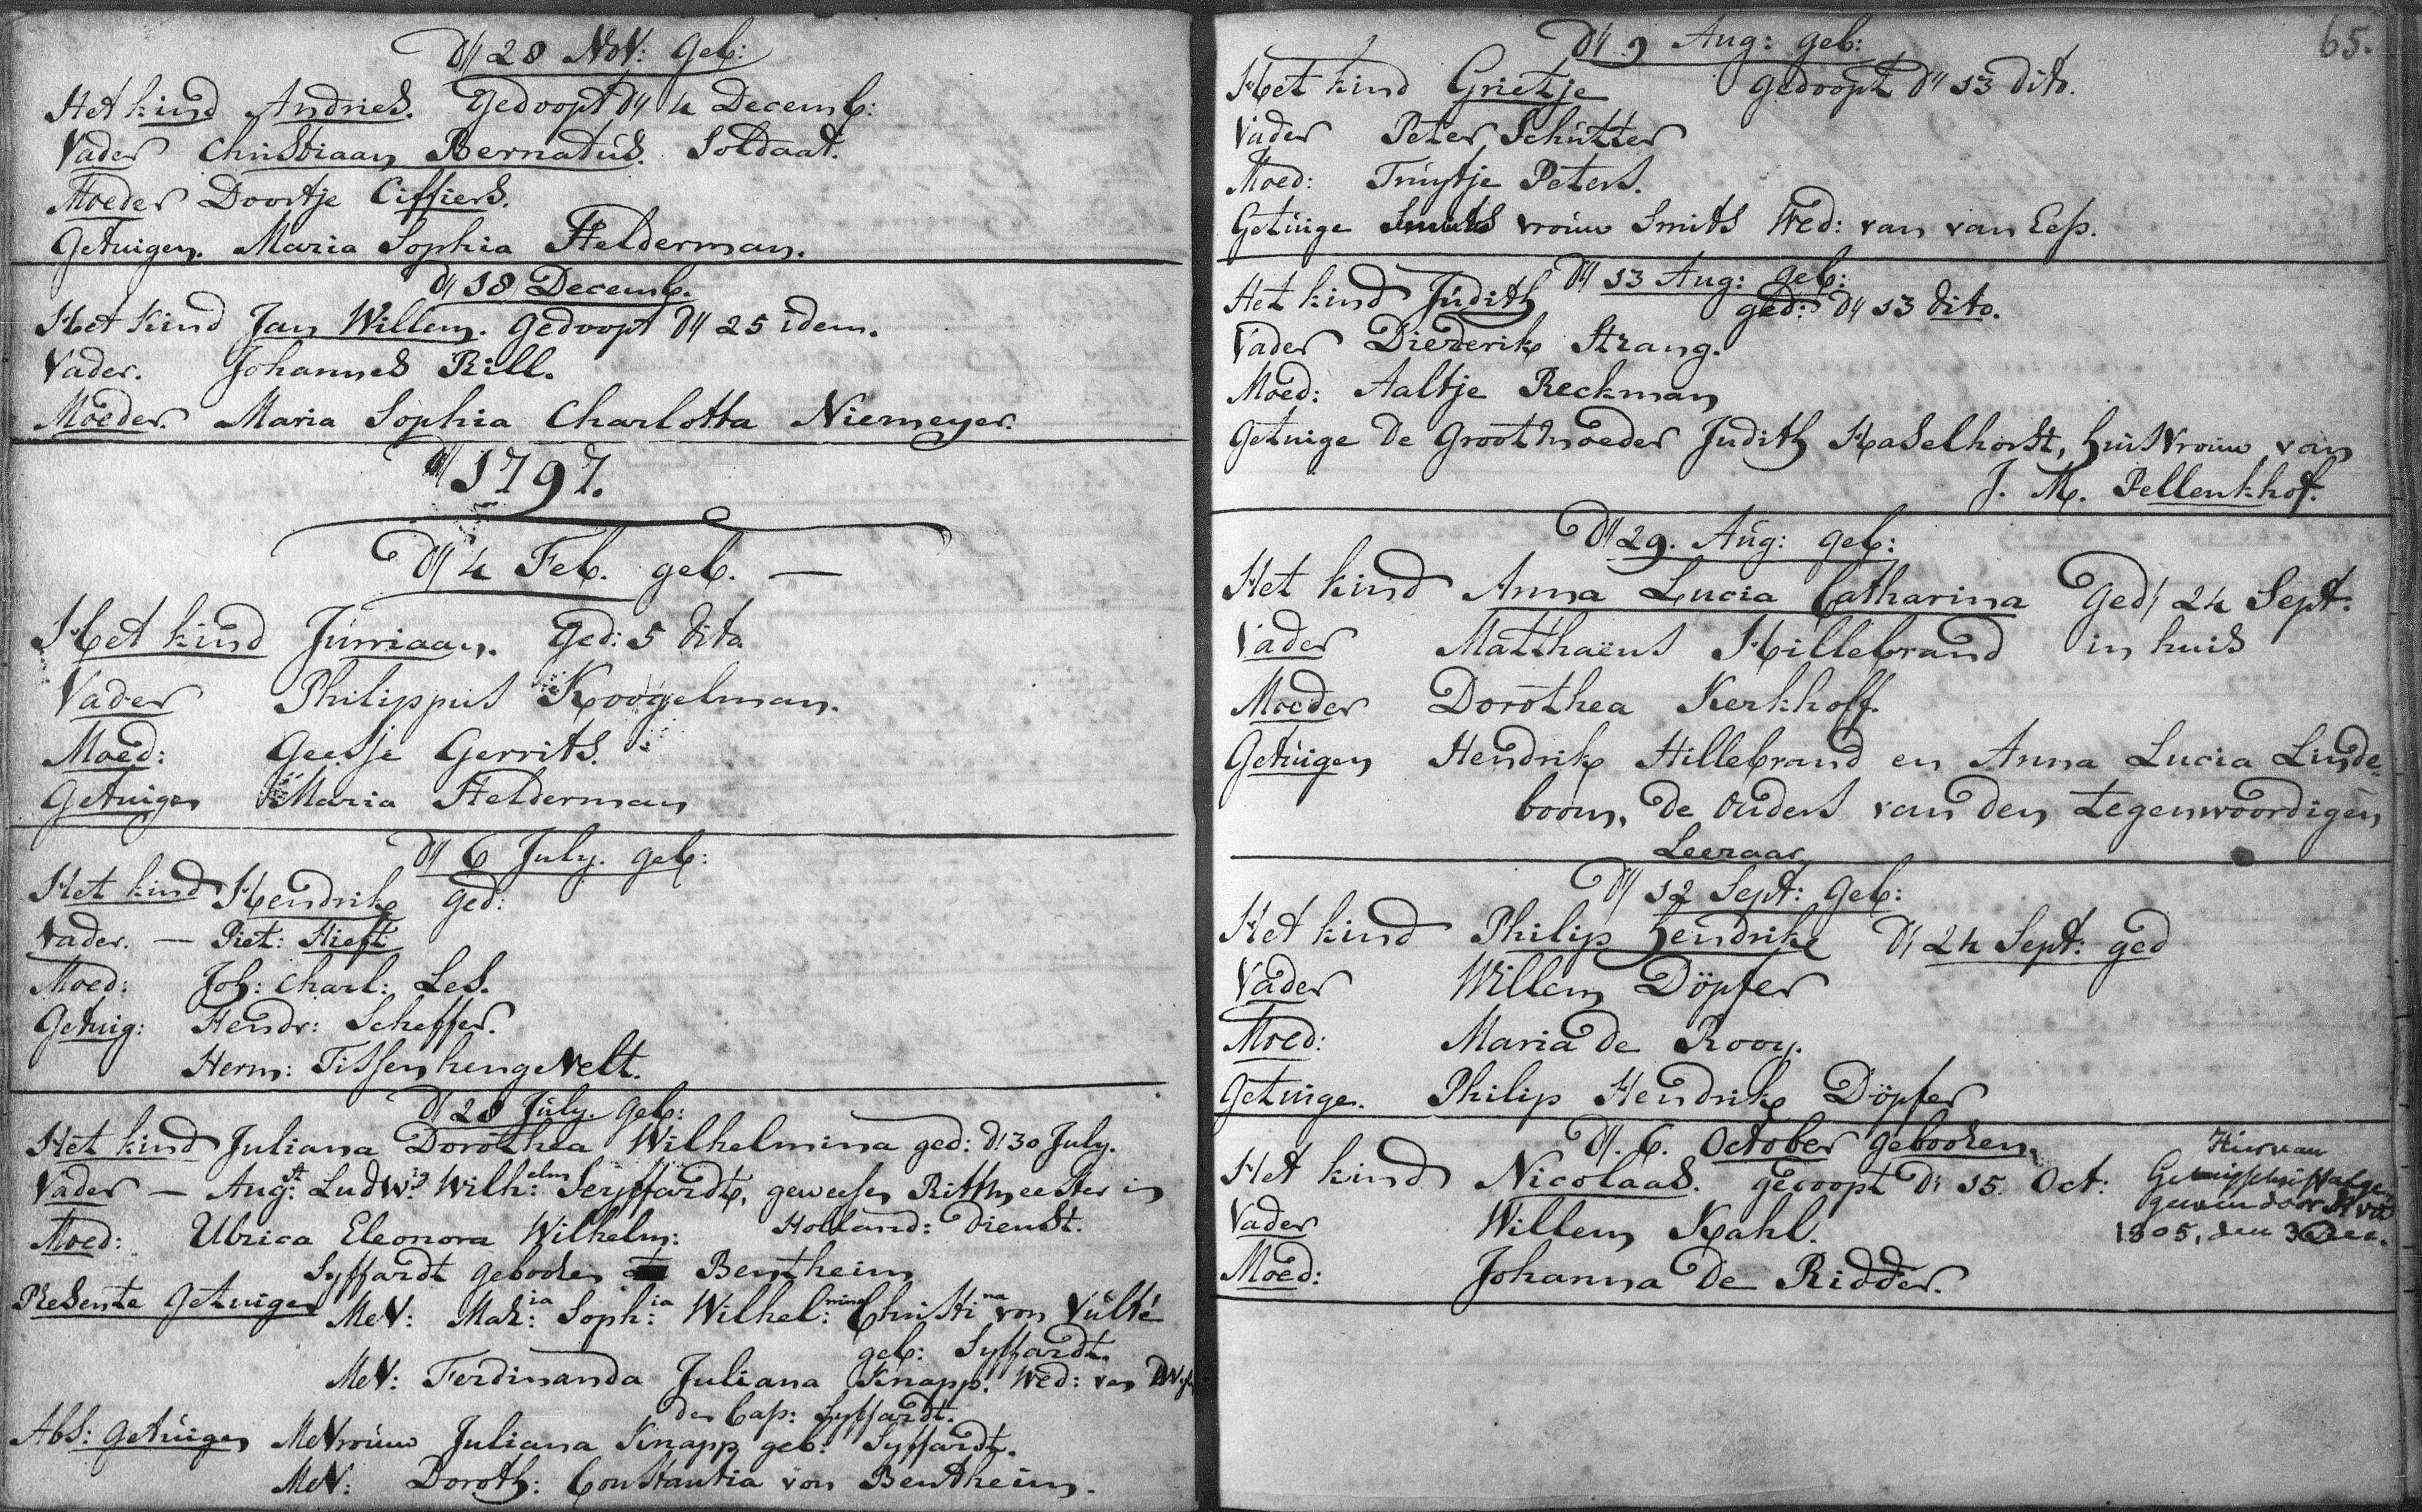 Dy 28 Nov: geb:
Het kind Andries. Gedoopt Dy 4 Decemb:
Vader Christiaan Bernatús. Soldaat.
Moeder Doortje Ciffiers.
Getuigen. Maria Sophia Helderman.
Dy 18 Decemb.
Het Kind Jan Willem. Gedoopt Dy 25 idem.
Vader. Johannes Rill.
Moeder. Maria Sophia Charlotta Niemeyer.
1797.
Dy 4 Feb. geb. —
Het kind Júrriaan. Ged: 5 dito
Vader Philippus Koogelman.
Moed: Geesje Gerrits.
Getuigen Maria Helderman
Dy 6 July. geb:
Het kind Hendrik ged:
Vader. — Piet: Hieft
Moed: Joh: Charl: Les.
Getuig: Hendr: Scheffer.
Herm: Tissenhengevelt.
D 28 Júly. Geb:
Het kind Juliana Dorothea Wilhelmina ged: d: 30 July.
Vader — Aug:st Ludw:ig Wilh:elm Seyffardt, geweesen Rittmeester in
Moed: Ulrica Eleonora Wilhelm: Holland: Dienst.
Syffardt gebooren Bentheim
Presente Getuigen Mev: Mar:ia Soph:ia Wilhel:mina Christina von Vúlté
geb: Syffardt.
Mev: Ferdinanda Juliana Knapp. Wed: van
den Cap: Syffardt.
Abs: Getúigen Mevroúw Juliana Knapp geb: Syffardt.
Mev: Doroth: Constantia von Bentheim.
65.
Dy 9 Aug: geb:
Het kind Grietje gedoopt Dy 13 dito.
Vader Peter Schútter
Moed: Trúytje Peters.
Getúige vroúw Smits Wed: van van Eess.
Dy 13 Aug: geb:
Het kind Júdith ged: Dy 13 dito.
Vader Diederik Strang.
Moed: Aaltje Reckman
Getuige de Grootmoeder Judith Haselhorst, huisvroúw van
J. M. Pellenkhof.
Dy 29. Aúg: geb:
Het kind Anna Lucia Catharina Ged 24 Sept:
Vader Matthaëus Hillebrand in huis
Moeder Dorothea Kerkhoff.
Getúigen Hendrik Hillebrand en Anna Lucia Linde-
boom, de Ouders van den tegenwoordigen
Leeraar
Dy 12 Sept: Geb:
Het kind Philip Hendrik D 24 Sept: ged
Vader Willem Döpfer
Moed: Maria de Rooy.
Getuige. Philip Hendrik Döpfer
Dy. 6. October gebooren.
Het kind Nicolaas. gedoopt D: 15. Oct:
Vader Willem Kahl.
Moed: Johanna de Ridder.
Hiervan
Getuigschrift afge-
geven door
1805, den 3 Dec.